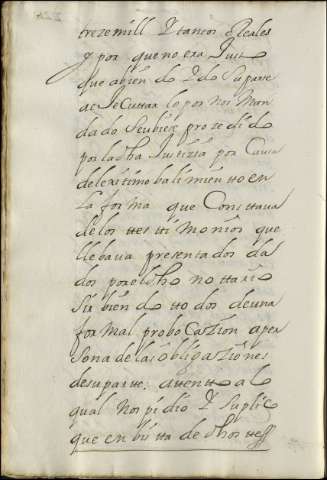 treze mill y tantos Reales
y por que no era Justo
que abiendo ydo su parte
a eJecuttar lo por nos man
dado se ubiese prosedido
por la dha Justizia por Caussa
de lexitimo balimiento en
la forma que Consttava
de los ttesttimonios que
llebava presentados da
dos por el dho nottario
sirbiendo ttodos de una
formal probocazion a per
sona de las obligaziones
de su partte. atentto a lo
qual nos pidio y suplico
que en bistta de dhos ttes